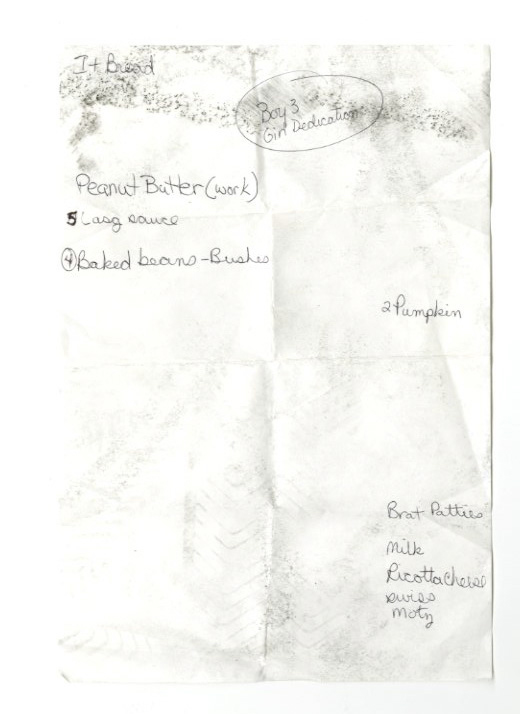 It Bread
Boy 3
Girl Dedication
Peanut Butter (work)
5 Lasg sauce
4 Baked beans - Bushes
2 Pumpkin
Brat Patties
Milk
Ricotta cheese
swiss
Motz